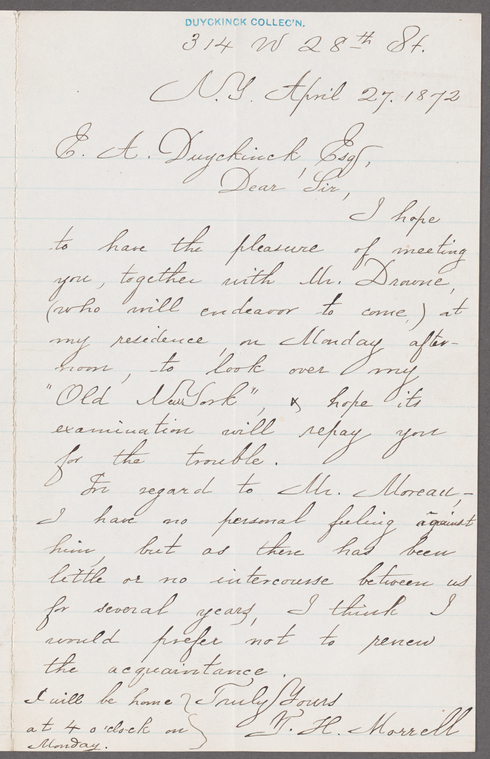 DUYCKINCK COLLEC'N.
314 W 28th St.
N.Y. April 27. 1872
E. A. Duyckinck, Esq,
Dear Sir,
I hope
to have the pleasure of meeting
you, together with Mr. Drowne,
(who will endeavor to come,) at
my residence, on Monday after-
noon, to look over my
"Old New York", & hope its
examination will repay you
for the trouble.
In regard to Mr. Moreau,-
I have no personal feeling against
him, but as there has been
little or no intercourse between us
for several years, I think I
would prefer not to renew
the acquaintance.
Truly Yours
T. H. Morrell
I will be home
at 4 o'clock on
Monday.